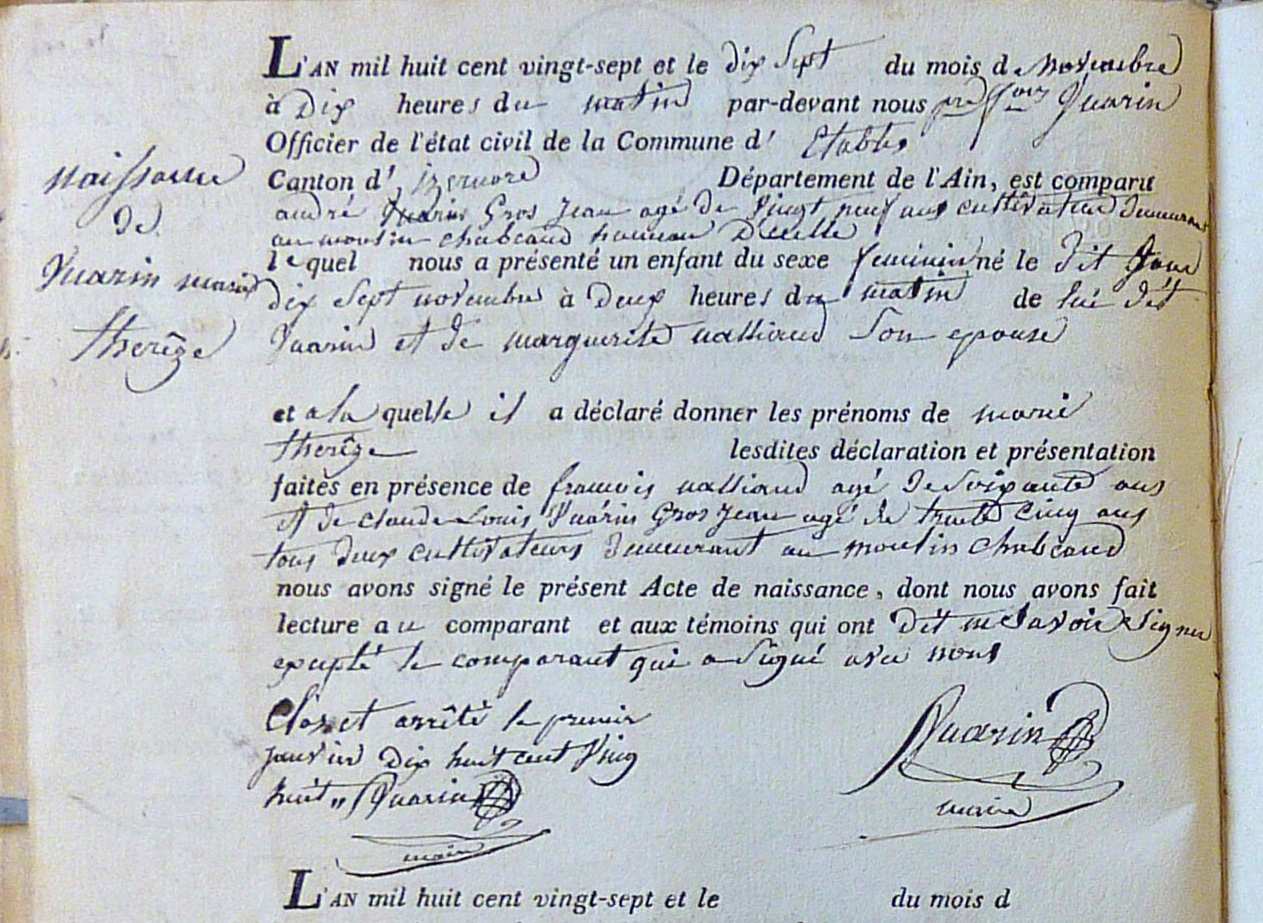 L'AN mil huit cent vingt-sept et le dix sept du mois de novembre
à Dix heures du matin par-devant nous Quarin
Officier de l'état civil de la Commune d' Etables
Canton d' izernore Département de l'Ain, est comparu
andré Quarin Gros Jean agé de vingt neuf ans cultivateur demeurant
au moulin chabeaud hameau
lequel nous a présenté un enfant du sexe feminin né le dit jour
dix sept novembre à Deux heures du matin de lui dit
Quarin et de marguerite nalliaud son epouse
naissance
de
Quarin marie
therêze
et a la quelle il a déclaré donner les prénoms de marie
therêze lesdites déclaration et présentation
faites en présence de francois nalliaud agé de soixante ans
et de claude Louis Quarin Gros Jean agé de trente cinq ans
tous deux cultivateurs demeurant au moulin chabeaud
nous avons signé le présent Acte de naissance, dont nous avons fait
lecture au comparant et aux témoins qui ont dit ne savoir signer
exepté le comparant qui a signé avec nous
Clos et arrêté le premier
janvier dix huit cent ving
huit Quarin
maire
Quarin
maire
L'AN mil huit cent vingt-sept et le du mois d